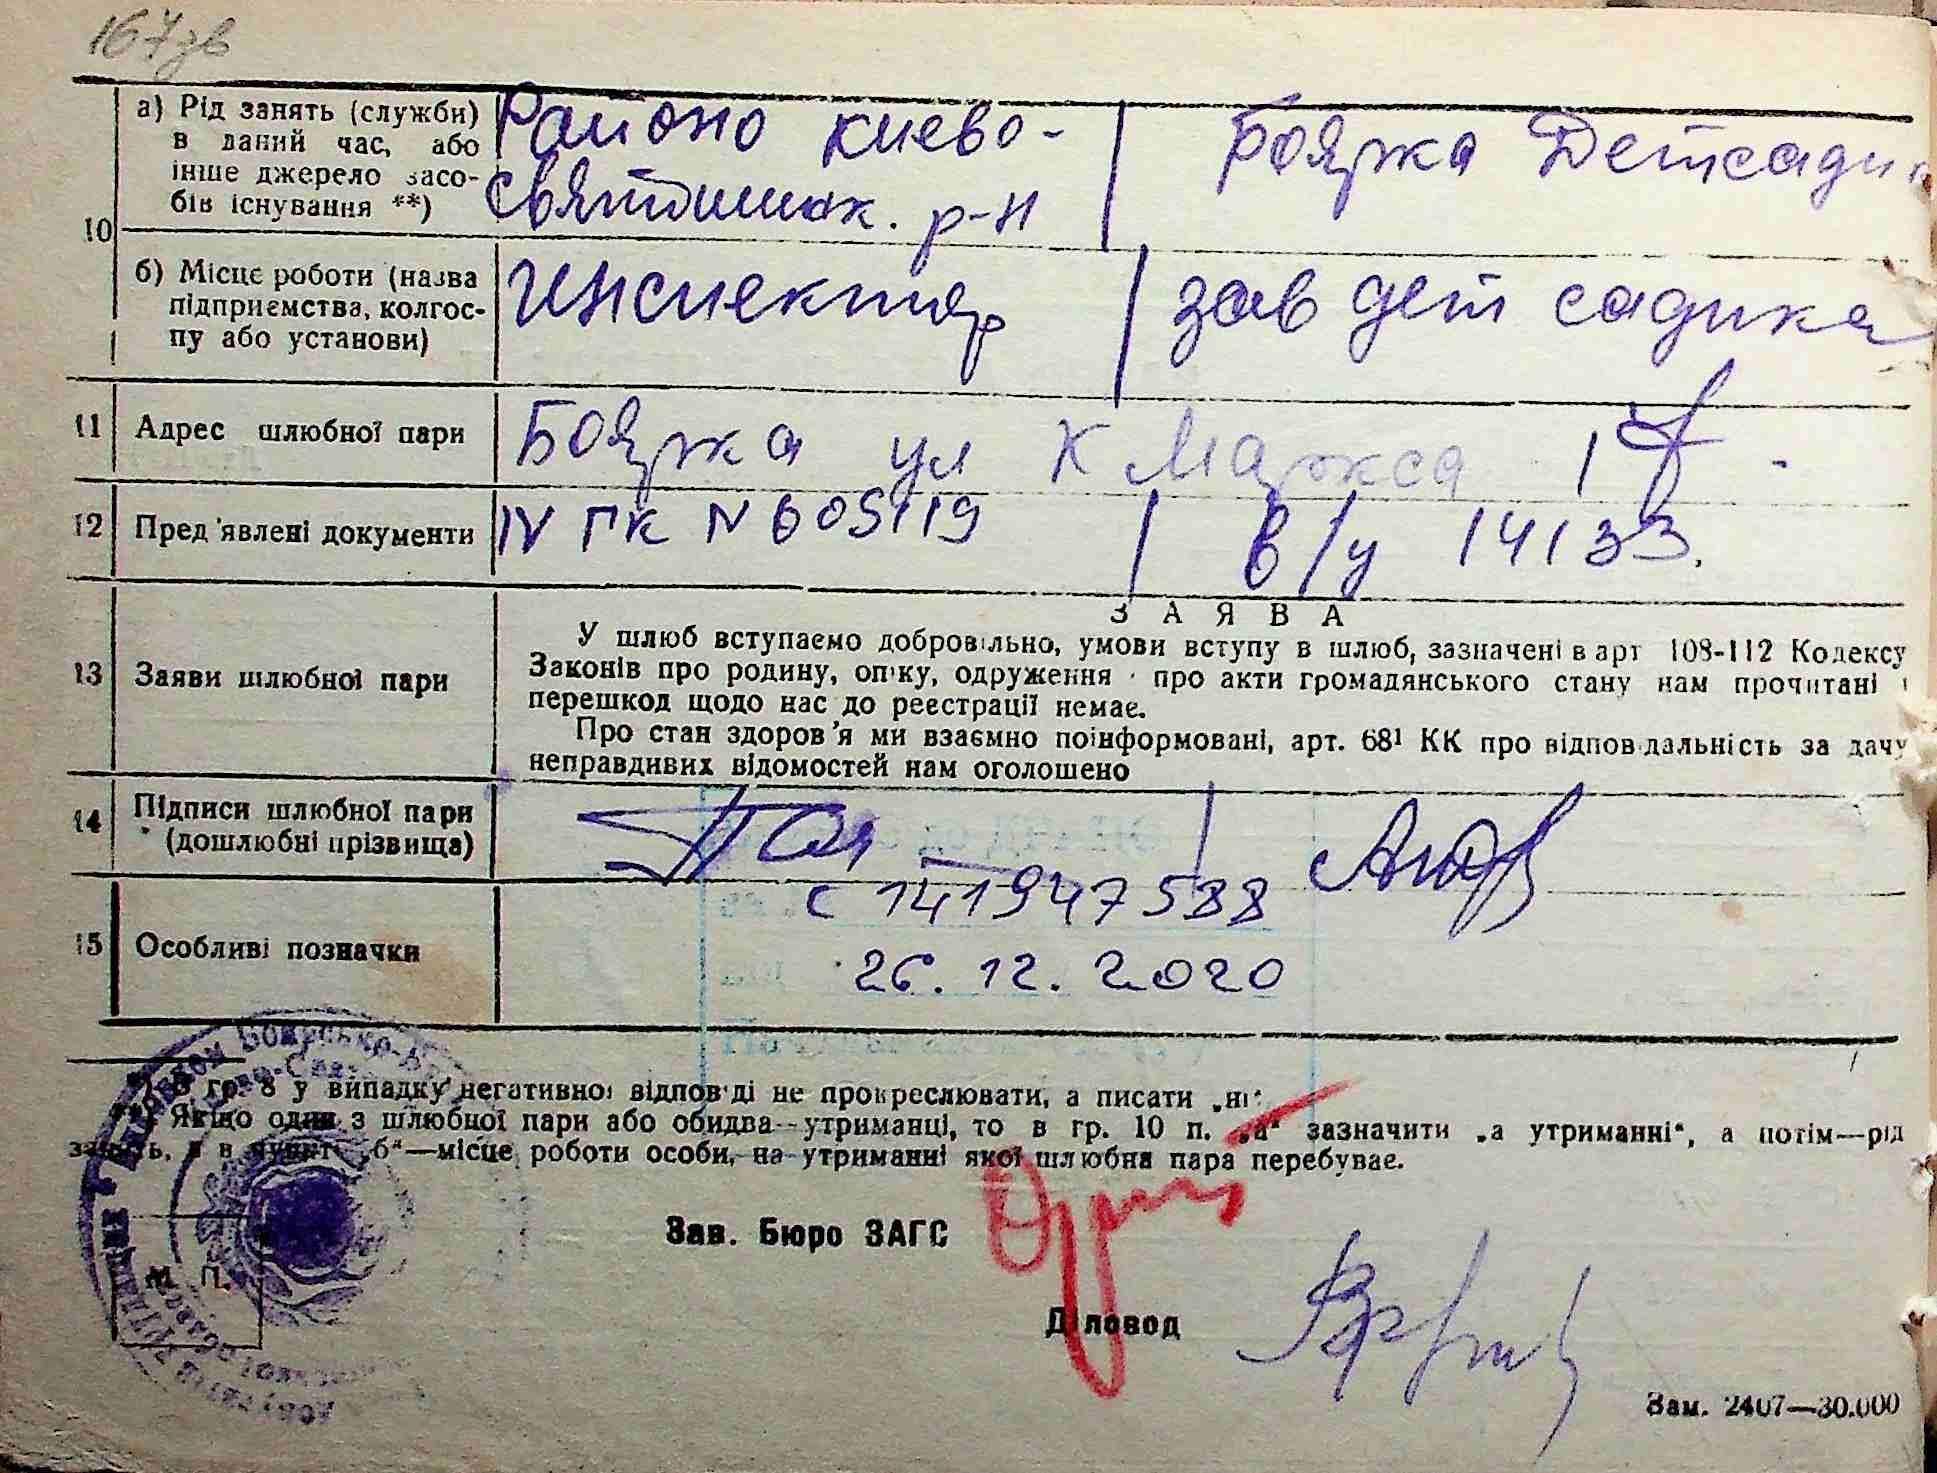 167зв
10
а) Рід занять (служби)
в даний час, або
інше джерело засо-
бів існування **)
Районо Киево-
Святошинск. р-н
Боярка Детсадик
б) Місце роботи (назва
підприємства, колгос-
пу або установи)
Инспектор
зав дет садика
11 Адрес шлюбної пари
Боярка ул К Маркса
12 Пред'явлені документи
IV ГК N 605119
в/у 14133.
13 Заяви шлюбної пари
ЗАЯВА
У шлюб вступаємо добровільно, умови вступу в шлюб, зазначені в арт 108-112 Кодексу
Законів про родину, опіку, одруження і про акти громадянського стану нам прочитані і
перешкод щодо нас до реєстрації немає.
Про стан здоров'я ми взаємно поінформовані, арт. 68¹ КК про відповідальність за дачу
неправдивих відомостей нам оголошено
14 Підписи шлюбної пари
(дошлюбні прізвища)
15 Особливі позначки
с 141947588
26.12.2020
*) В гр. 8 у випадку негативної відповіді не прокреслювати, а писати „ні“
**) Якщо один з шлюбної пари або обидва—утриманці, то в гр. 10 п. „а“ зазначити „а утриманні“, а потім—рід
занять, а в пункті „б“—місце роботи особи, на утриманні якої шлюбна пара перебуває.
Зав. Бюро ЗАГС
М. П.
Діловод
Зам. 2407—30.000